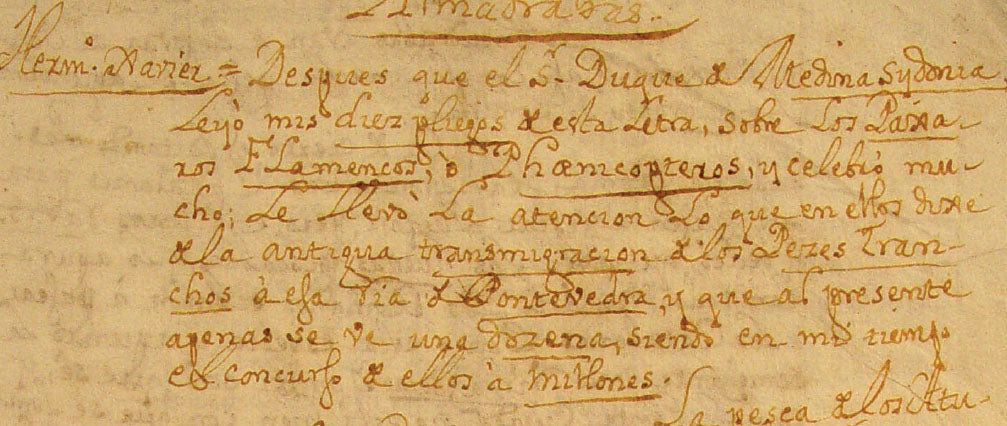 Almadrabas.
Herm.º Xavier = Despues que el S.r Duque de Medina Sydonia
Leyò mis diez pliegos de esta Letra, sobre Los Páxa-
ros FLamencos, ò Phœnicopteros, y celebró mu-
cho; Le llevò La atencion Lo que en ellos dixe
de la antigua transmigracion de los Pezes Tran-
chos à esa Ria de Pontevedra, y que al presente
apenas se ve una dozena, siendo en mi tiempo
el concurso de ellos à millones.
La pesca de los Atu-